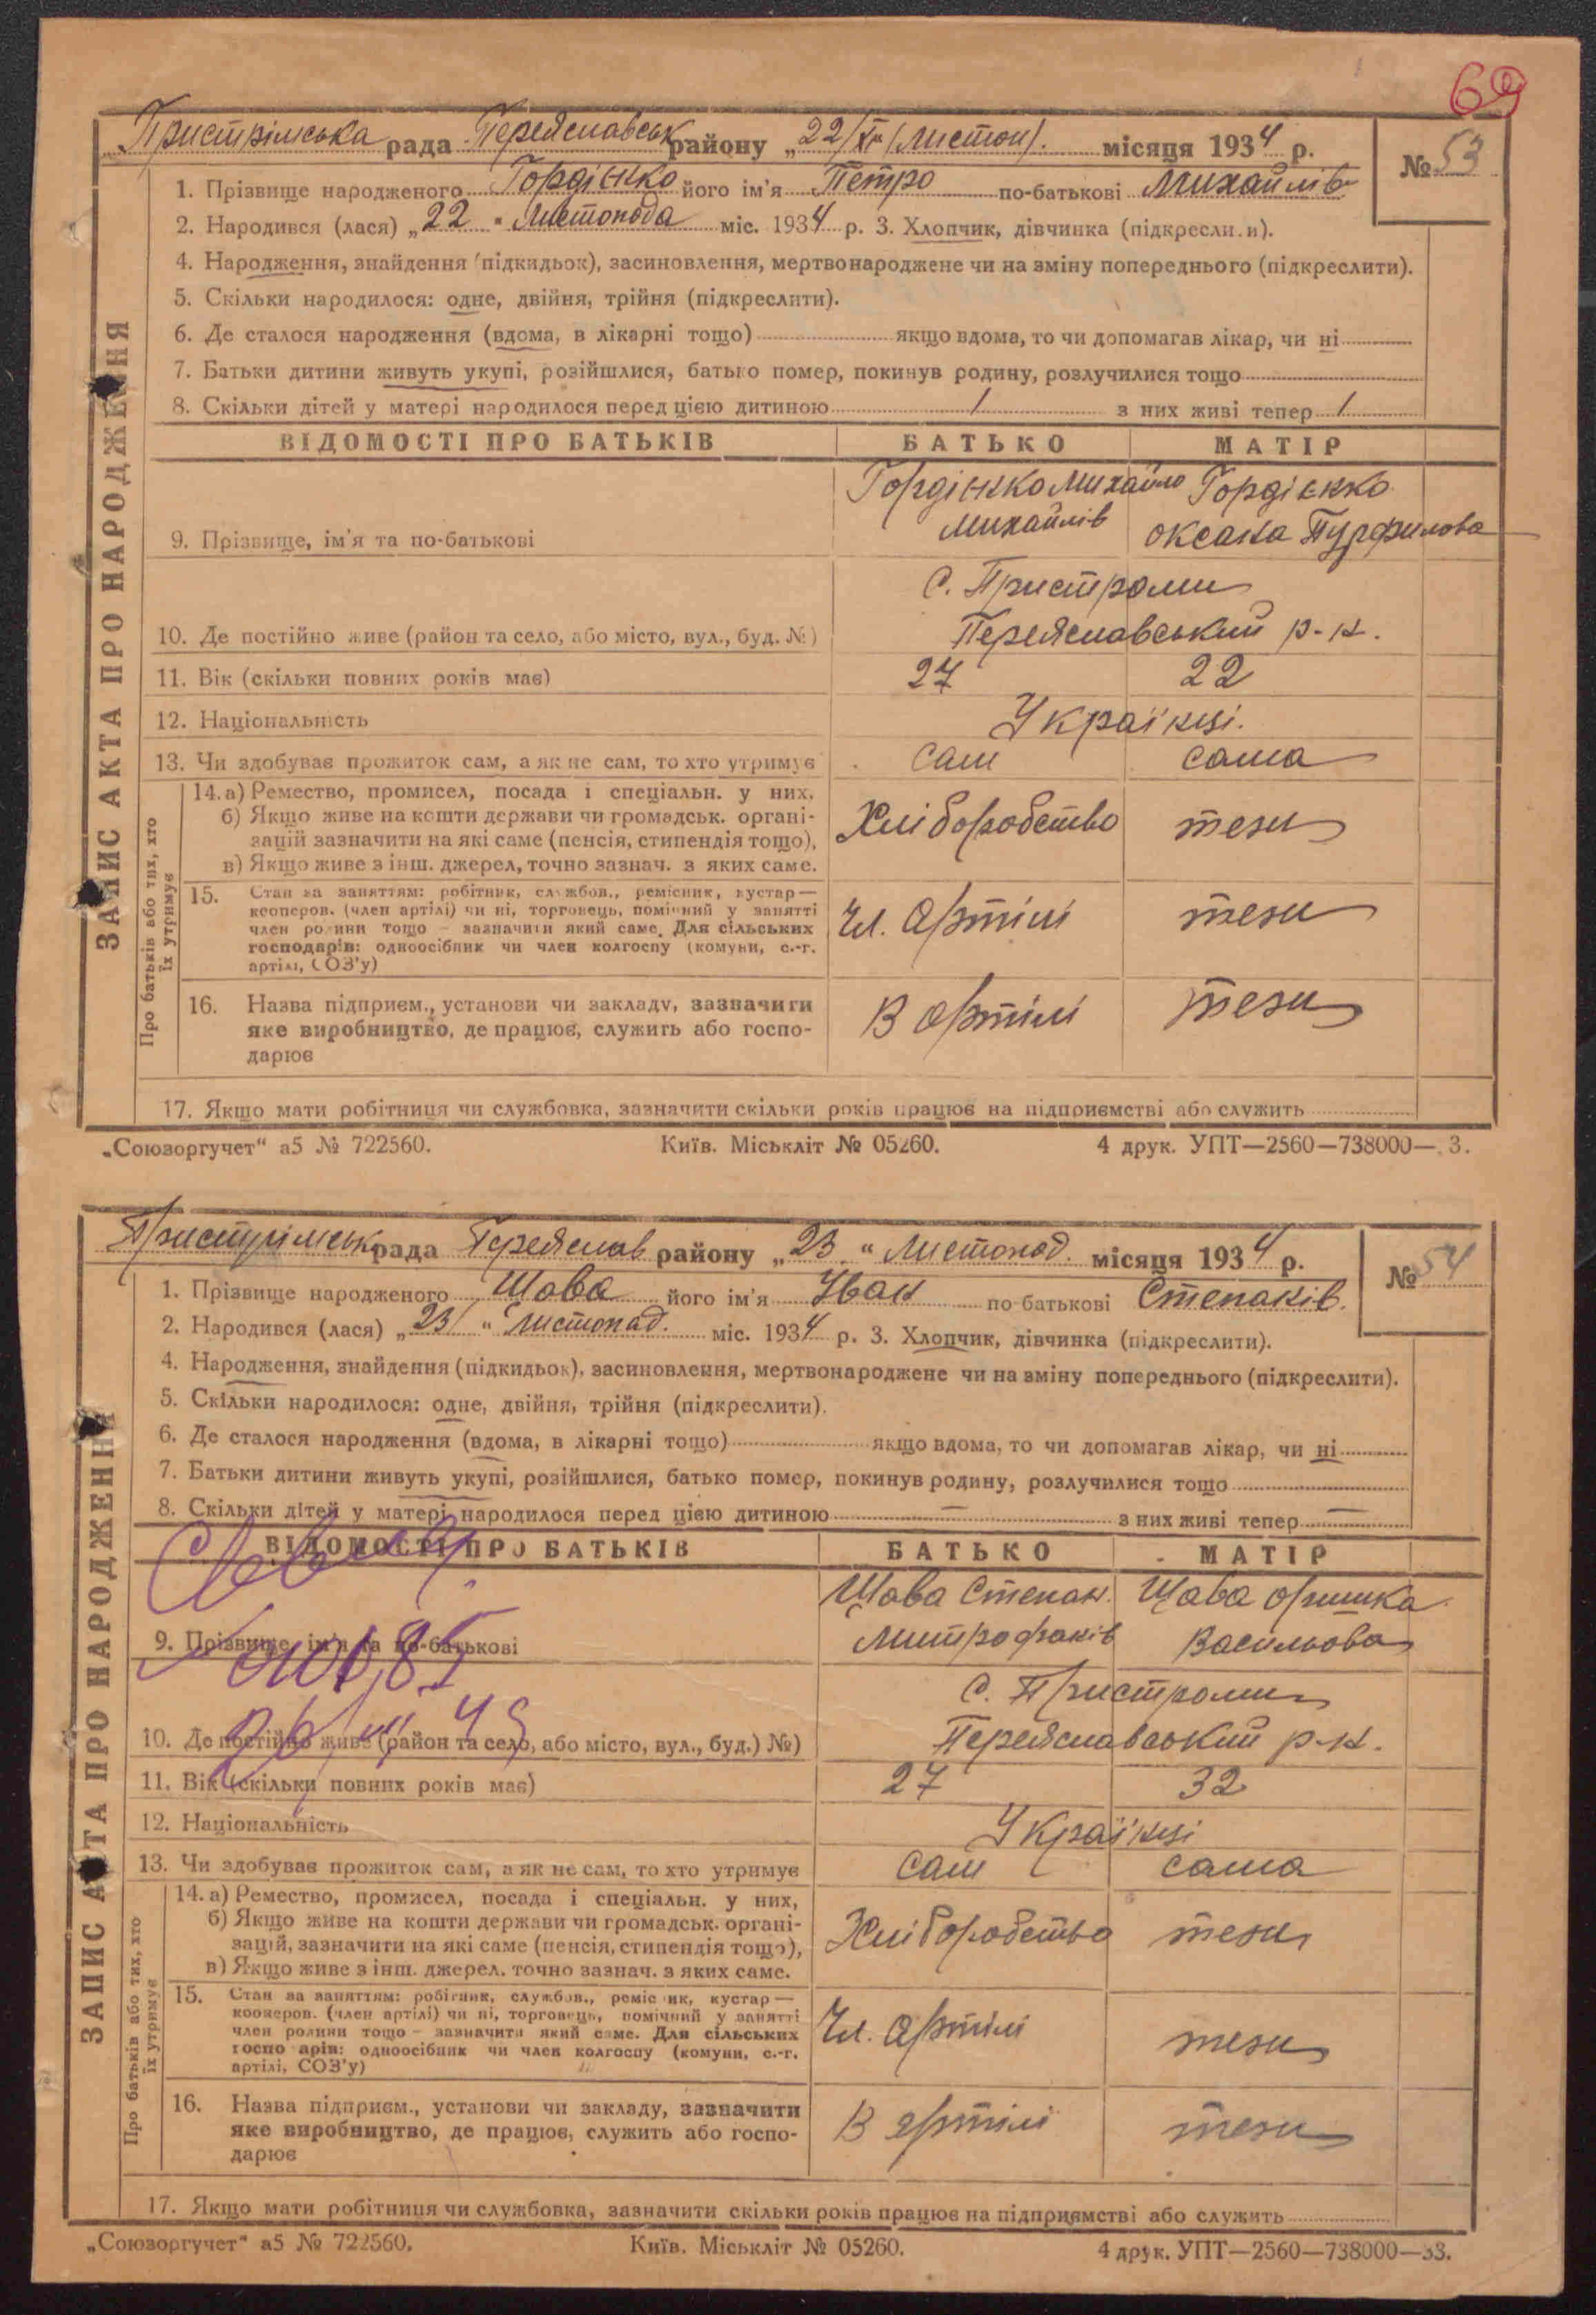 69
Пристрімська рада Переяславськ району „22/XI (листоп). місяця 1934 р.
№ 53
1. Прізвище народженого Гордієнко його ім'я Петро по-батькові Михайлів
2. Народився (лася) „22" Листопада міс. 1934 р. 3. Хлопчик, дівчинка (підкреслити).
4. Народження, знайдення (підкидьок), засиновлення, мертвонароджене чи на зміну попереднього (підкреслити).
5. Скільки народилося: одне, двійня, трійня (підкреслити).
6. Де сталося народження (вдома, в лікарні тощо) якщо вдома, то чи допомагав лікар, чи ні
7. Батьки дитини живуть укупі, розійшлися, батько помер, покинув родину, розлучилися тощо
8. Скільки дітей у матері народилося перед цією дитиною 1 з них живі тепер 1
ЗАПИС АКТА ПРО НАРОДЖЕННЯ
ВІДОМОСТІ ПРО БАТЬКІВ БАТЬКО МАТІР
9. Прізвище, ім'я та по-батькові
Гордієнко Михайло Гордієнко
Михайлів Оксана Пурфилова
с. Пристроми
10. Де постійно живе (район та село, або місто, вул., буд. №) Переяславський р-н.
11. Вік (скільки повних років має) 27 22
12. Національність Українці.
13. Чи здобуває прожиток сам, а як не сам, то хто утримує сам сама
Про батьків або тих, хто
їх утримує
14. а) Ремество, промисел, посада і спеціальн. у них,
б) Якщо живе на кошти держави чи громадськ. органі-
зацій зазначити на які саме (пенсія, стипендія тощо),
в) Якщо живе з інш. джерел, точно зазнач. з яких саме.
Хліборобство тези
15. Стан за заняттям: робітник, службов., ремісник, кустар —
кооперов. (член артілі) чи ні, торговець, помічний у занятті
член родини тощо — зазначити який саме. Для сільських
господарів: одноосібник чи член колгоспу (комуни, с.-г.
артілі, СОЗ'у)
Чл. Артілі тези
16. Назва підприєм., установи чи закладу, зазначити
яке виробництво, де працює, служить або госпо-
дарює
В артілі тези
17. Якщо мати робітниця чи службовка, зазначити скільки років працює на підприємстві або служить
„Союзоргучет" а5 № 722560. Київ. Міськліт № 05260. 4 друк. УПТ—2560—738000—3.
Пристрімськ рада Переяслав району „23" Листопад. місяця 1934 р.
№ 54
1. Прізвище народженого Шава його ім'я Іван по-батькові Степанів.
2. Народився (лася) „23" Листопад. міс. 1934 р. 3. Хлопчик, дівчинка (підкреслити).
4. Народження, знайдення (підкидьок), засиновлення, мертвонароджене чи на зміну попереднього (підкреслити).
5. Скільки народилося: одне, двійня, трійня (підкреслити).
6. Де сталося народження (вдома, в лікарні тощо) якщо вдома, то чи допомагав лікар, чи ні
7. Батьки дитини живуть укупі, розійшлися, батько помер, покинув родину, розлучилися тощо
8. Скільки дітей у матері народилося перед цією дитиною — з них живі тепер —
ЗАПИС АКТА ПРО НАРОДЖЕННЯ
ВІДОМОСТІ ПРО БАТЬКІВ БАТЬКО МАТІР
9. Прізвище, ім'я та по-батькові
Шава Степан. Шава Оришка
Митрофанів Васильова
с. Пристроми
10. Де постійно живе (район та село, або місто, вул., буд.) №) Переяславський р-н.
11. Вік (скільки повних років має) 27 32
12. Національність Українці
13. Чи здобуває прожиток сам, а як не сам, то хто утримує сам сама
Про батьків або тих, хто
їх утримує
14. а) Ремество, промисел, посада і спеціальн. у них,
б) Якщо живе на кошти держави чи громадськ. органі-
зацій, зазначити на які саме (пенсія, стипендія тощо),
в) Якщо живе з інш. джерел. точно зазнач. з яких саме.
Хліборобство тези
15. Стан за заняттям: робітник, службов., ремісник, кустар —
кооперов. (член артілі) чи ні, торговець, помічний у занятті
член родини тощо — зазначити який саме. Для сільських
господарів: одноосібник чи член колгоспу (комуни, с.-г.
артілі, СОЗ'у)
Чл. Артілі тези
16. Назва підприєм., установи чи закладу, зазначити
яке виробництво, де працює, служить або госпо-
дарює
В артілі тези
17. Якщо мати робітниця чи службовка, зазначити скільки років працює на підприємстві або служить
„Союзоргучет" а5 № 722560. Київ. Міськліт № 05260. 4 друк. УПТ—2560—738000—33.